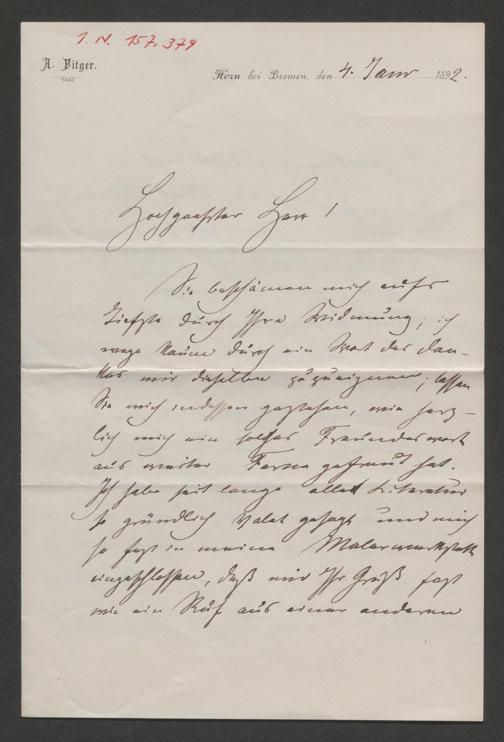 I. N. 157.379
A. Fitger.
Horn bei Bremen, den 4. Janr 1892.
Hochgeehrter Herr!
Sie beschämen mich aufs
Tiefste durch Ihre Widmung; ich
wage kaum durch ein Wort des Dan-
kes mir dieselben zuzueignen; lassen
Sie mich indessen gestehen, wie herz-
lich mich ein solches Freundeswort
aus weiter Ferne gefreut hat.
Ich habe seit lange aller Literatur
so gründlich Valet gesagt und mich
so fest in meine Malerwerkstatt
eingeschlossen, daß mir Ihr Gruß fast
wie ein Ruf aus einer anderen